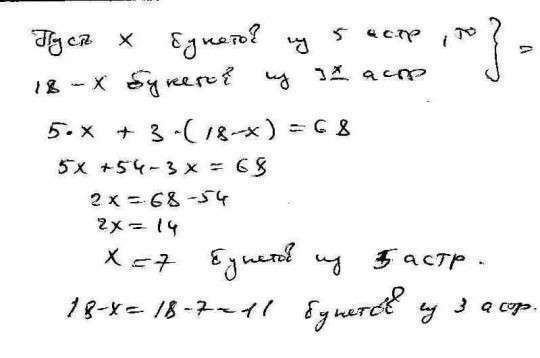 Пусть x букетов из 5 астр, то
18 - x букетов из 3х астр } =>
5·x + 3·(18-x) = 68
5x + 54 - 3x = 68
2x = 68 - 54
2x = 14
x = 7 букетов из 5 астр.
18-x = 18-7 = 11 букетов из 3 астр.